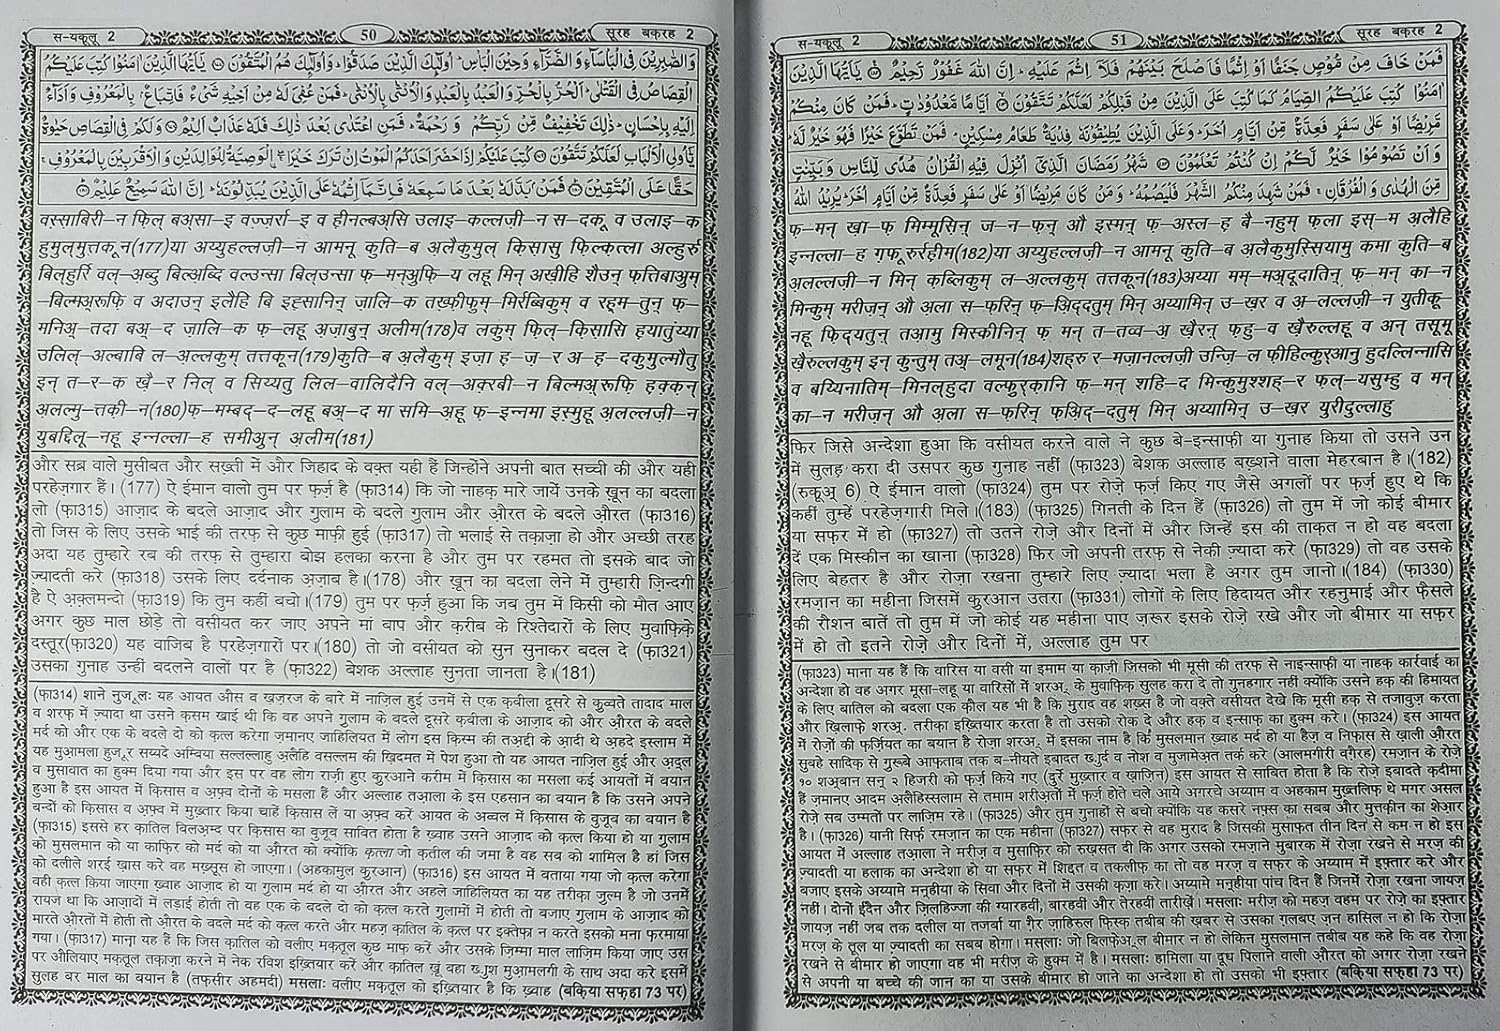 स-यकूलू 2
50
सूरह बकरह 2
وَالصّٰبِرِيْنَ فِى الْبَاْسَآءِ وَالضَّرَّآءِ وَحِيْنَ الْبَاْسِ ؕ اُولٰٓئِكَ الَّذِيْنَ صَدَقُوْا ؕ وَاُولٰٓئِكَ هُمُ الْمُتَّقُوْنَ يٰٓاَيُّهَا الَّذِيْنَ اٰمَنُوْا كُتِبَ عَلَيْكُمُ
الْقِصَاصُ فِى الْقَتْلٰى ؕ اَلْحُرُّ بِالْحُرِّ وَالْعَبْدُ بِالْعَبْدِ وَالْاُنْثٰى بِالْاُنْثٰى ؕ فَمَنْ عُفِىَ لَهٗ مِنْ اَخِيْهِ شَىْءٌ فَاتِّبَاعٌۢ بِالْمَعْرُوْفِ وَاَدَآءٌ
اِلَيْهِ بِاِحْسَانٍ ؕ ذٰلِكَ تَخْفِيْفٌ مِّنْ رَّبِّكُمْ وَرَحْمَةٌ ؕ فَمَنِ اعْتَدٰى بَعْدَ ذٰلِكَ فَلَهٗ عَذَابٌ اَلِيْمٌ وَلَكُمْ فِى الْقِصَاصِ حَيٰوةٌ
يّٰٓاُولِى الْاَلْبَابِ لَعَلَّكُمْ تَتَّقُوْنَ كُتِبَ عَلَيْكُمْ اِذَا حَضَرَ اَحَدَكُمُ الْمَوْتُ اِنْ تَرَكَ خَيْرَا ۖ الْوَصِيَّةُ لِلْوَالِدَيْنِ وَالْاَقْرَبِيْنَ بِالْمَعْرُوْفِ
حَقًّا عَلَى الْمُتَّقِيْنَ فَمَنْۢ بَدَّلَهٗ بَعْدَ مَا سَمِعَهٗ فَاِنَّمَآ اِثْمُهٗ عَلَى الَّذِيْنَ يُبَدِّلُوْنَهٗ ؕ اِنَّ اللّٰهَ سَمِيْعٌ عَلِيْمٌ
वस्साबिरी–न फ़िल् बअ्सा–इ वज़्ज़र्रा–इ व हीनल्बअ्सि उलाइ–कल्लज़ी–न स–दकू व उलाइ–क
हुमुलमुत्तकून(177)या अय्युहल्लज़ी–न आमनू कुति–ब अलैकुमुल् किसासु फ़िल्कत्ला अल्हुर्रु
बिल्हुर्रि वल्–अब्दु बिल्अब्दि वल्उन्सा बिल्उन्सा फ़–मन्अुफ़ि–य लहू मिन् अखीहि शैउन् फ़त्तिबाअुम्
–बिल्मअ्रूफ़ि व अदाउन् इलैहि बि इह्सानिन् ज़ालि–क तख्फ़ीफ़ुम्–मिर्रब्बिकुम् व रह़्म–तुन् फ़–
मनिअ्–तदा बअ्–द ज़ालि–क फ़–लहू अज़ाबुन् अलीम(178)व लकुम् फ़िल्–किसासि ह़यातुंय्या
उलिल्–अल्बाबि ल–अल्लकुम् तत्तकून(179)कुति–ब अलैकुम् इज़ा ह–ज़–र अ–ह–दकुमुल्मौतु
इन् त–र–क खै–र निल् व सिय्यतु लिल–वालिदैनि वल्–अक़रबी–न बिल्मअ्रूफ़ि ह़क़्क़न्
अलल्मु–त्तकी–न(180)फ़–मम्बद्–द–लहू बअ्–द मा समि–अहू फ़–इन्नमा इस्मुहू अलल्लज़ी–न
युबद्दिलू–नहू इन्नल्ला–ह समीअुन् अलीम(181)
और सब्र वाले मुसीबत और सख़्ती में और जिहाद के वक़्त यही हैं जिन्होंने अपनी बात सच्ची की और यही
परहेज़गार हैं। (177) ऐ ईमान वालो तुम पर फ़र्ज़ है (फ़ा314) कि जो नाहक़ मारे जायें उनके ख़ून का बदला
लो (फ़ा315) आज़ाद के बदले आज़ाद और गुलाम के बदले गुलाम और औरत के बदले औरत (फ़ा316)
तो जिस के लिए उसके भाई की तरफ़ से कुछ माफ़ी हुई (फ़ा317) तो भलाई से तक़ाज़ा हो और अच्छी तरह
अदा यह तुम्हारे रब की तरफ़ से तुम्हारा बोझ हलका करना है और तुम पर रहमत तो इसके बाद जो
ज़्यादती करे (फ़ा318) उसके लिए दर्दनाक अज़ाब है।(178) और ख़ून का बदला लेने में तुम्हारी ज़िन्दगी
है ऐ अक़्लमन्दो (फ़ा319) कि तुम कहीं बचो।(179) तुम पर फ़र्ज़ हुआ कि जब तुम में किसी को मौत आए
अगर कुछ माल छोड़े तो वसीयत कर जाए अपने मां बाप और क़रीब के रिश्तेदारों के लिए मुवाफ़िक़े
दस्तूर(फ़ा320) यह वाजिब है परहेज़गारों पर।(180) तो जो वसीयत को सुन सुनाकर बदल दे (फ़ा321)
उसका गुनाह उन्हीं बदलने वालों पर है (फ़ा322) बेशक अल्लाह सुनता जानता है।(181)
(फ़ा314) शाने नुज़ूलः यह आयत औस व ख़ज़रज के बारे में नाज़िल हुई उनमें से एक क़बीला दूसरे से कुव्वते तादाद माल
व शरफ़ में ज़्यादा था उसने क़सम खाई थी कि वह अपने गुलाम के बदले दूसरे क़बीला के आज़ाद को और औरत के बदले
मर्द को और एक के बदले दो को क़त्ल करेगा ज़मानए जाहिलियत में लोग इस क़िस्म की तअद्दी के आदी थे अहदे इस्लाम में
यह मुआमला हुज़ूर सय्यदे अम्बिया सल्लल्लाहु अलैहि वसल्लम की ख़िदमत में पेश हुआ तो यह आयत नाज़िल हुई और अदूल
व मुसावात का हुक्म दिया गया और इस पर वह लोग राज़ी हुए कुरआने करीम में क़िसास का मसला कई आयतों में बयान
हुआ है इस आयत में क़िसास व अफ़्व दोनों के मसला हैं और अल्लाह तआला के इस एहसान का बयान है कि उसने अपने
बन्दों को क़िसास व अफ़्व में मुख़्तार किया चाहें क़िसास लें या अफ़्व करें आयत के अव्वल में क़िसास के वुजूब का बयान है
(फ़ा315) इससे हर क़ातिल बिलअम्द पर क़िसास का वुजूब साबित होता है ख़्वाह उसने आज़ाद को क़त्ल किया हो या गुलाम
को मुसलमान को या काफ़िर को मर्द को या औरत को क्योंकि क़त्ला जो क़तील की जमा है वह सब को शामिल है हां जिस
को दलीले शरई ख़ास करे वह मख़्सूस हो जाएगा। (अहकामुल कुरआन) (फ़ा316) इस आयत में बताया गया जो क़त्ल करेगा
वही क़त्ल किया जाएगा ख़्वाह आज़ाद हो या गुलाम मर्द हो या औरत और अहले जाहिलियत का यह तरीक़ा ज़ुल्म है जो उनमें
रायज था कि आज़ादों में लड़ाई होती तो वह एक के बदले दो को क़त्ल करते गुलामों में होती तो बजाए गुलाम के आज़ाद को
मारते औरतों में होती तो औरत के बदले मर्द को क़त्ल करते और महज़ क़ातिल के क़त्ल पर इक्तेफ़ा न करते इसको मना फ़रमाया
गया। (फ़ा317) माना यह हैं कि जिस क़ातिल को वलीए मक़तूल कुछ माफ़ करें और उसके ज़िम्मा माल लाज़िम किया जाए उस
पर औलियाए मक़तूल तक़ाज़ा करने में नेक रविश इख़्तियार करें और क़ातिल ख़ूं बहा ख़ुश मुआमलगी के साथ अदा करे इसमें
सुलह बर माल का बयान है (तफ़सीर अहमदी) मसलाः वलीए मक़तूल को इख़्तियार है कि ख़्वाह (बक़िया सफ़हा 73 पर)
स-यकूलू 2
51
सूरह बकरह 2
فَمَنْ خَافَ مِنْ مُّوْصٍ جَنَفًا اَوْ اِثْمًا فَاَصْلَحَ بَيْنَهُمْ فَلَآ اِثْمَ عَلَيْهِ ؕ اِنَّ اللّٰهَ غَفُوْرٌ رَّحِيْمٌ يٰٓاَيُّهَا الَّذِيْنَ
اٰمَنُوْا كُتِبَ عَلَيْكُمُ الصِّيَامُ كَمَا كُتِبَ عَلَى الَّذِيْنَ مِنْ قَبْلِكُمْ لَعَلَّكُمْ تَتَّقُوْنَ اَيَّامًا مَّعْدُوْدٰتٍ ؕ فَمَنْ كَانَ مِنْكُمْ
مَّرِيْضًا اَوْ عَلٰى سَفَرٍ فَعِدَّةٌ مِّنْ اَيَّامٍ اُخَرَ ؕ وَعَلَى الَّذِيْنَ يُطِيْقُوْنَهٗ فِدْيَةٌ طَعَامُ مِسْكِيْنٍ ؕ فَمَنْ تَطَوَّعَ خَيْرًا فَهُوَ خَيْرٌ لَّهٗ ؕ
وَاَنْ تَصُوْمُوْا خَيْرٌ لَّكُمْ اِنْ كُنْتُمْ تَعْلَمُوْنَ شَهْرُ رَمَضَانَ الَّذِىْٓ اُنْزِلَ فِيْهِ الْقُرْاٰنُ هُدًى لِّلنَّاسِ وَبَيِّنٰتٍ
مِّنَ الْهُدٰى وَالْفُرْقَانِ ؕ فَمَنْ شَهِدَ مِنْكُمُ الشَّهْرَ فَلْيَصُمْهُ ؕ وَمَنْ كَانَ مَرِيْضًا اَوْ عَلٰى سَفَرٍ فَعِدَّةٌ مِّنْ اَيَّامٍ اُخَرَ ؕ يُرِيْدُ اللّٰهُ
फ़–मन् खा–फ़ मिम्मूसिन् ज–न–फ़न् औ इस्मन् फ़–अस्ल–ह बै–नहुम् फ़ला इस्–म अलैहि
इन्नल्ला–ह ग़फ़ूरुर्रहीम(182)या अय्युहल्लज़ी–न आमनू कुति–ब अलैकुमुस्सियामु कमा कुति–ब
अलल्लज़ी–न मिन् क़ब्लिकुम् ल–अल्लकुम् तत्तकून(183)अय्या मम्–मअ्दूदातिन् फ़–मन् का–न
मिन्कुम् मरीज़न् औ अला स–फ़रिन् फ़–अि़द्दतुम् मिन् अय्यामिन् उ–ख़र व अ़–लल्लज़ी–न युतीक़ू–
नहू फ़िद्यतुन् तआ़मु मिस्कीनिन् फ़ मन् त–तव्व–अ़ खै़रन् फ़हु–व खै़रुल्लहू व अन् तसूमू
खै़रुल्लकुम् इन् कुन्तुम् तअ़्–लमून(184)शह्रु र–मज़ानल्लज़ी उन्ज़ि–ल फ़ीहिल्कुर्आनु हुदल्लिन्नासि
व बय्यिनातिम्–मिनल्हुदा वल्फ़ुर्क़ानि फ़–मन् शहि–द मिन्कुमुश्शह्–र फ़ल्–यसुम्हु व मन्
का–न मरीज़न् औ अ़ला स–फ़रिन् फ़अि़द्–दतुम् मिन् अय्यामिन् उ–ख़र युरीदुल्लाहु
फिर जिसे अन्देशा हुआ कि वसीयत करने वाले ने कुछ बे-इन्साफ़ी या गुनाह किया तो उसने उन
में सुलह करा दी उसपर कुछ गुनाह नहीं (फ़ा323) बेशक अल्लाह बख़्शने वाला मेहरबान है।(182)
(रुकूअ् 6) ऐ ईमान वालो (फ़ा324) तुम पर रोज़े फ़र्ज़ किए गए जैसे अगलों पर फ़र्ज़ हुए थे कि
कहीं तुम्हें परहेज़गारी मिले।(183) (फ़ा325) गिनती के दिन हैं (फ़ा326) तो तुम में जो कोई बीमार
या सफ़र में हो (फ़ा327) तो उतने रोज़े और दिनों में और जिन्हें इस की ताक़त न हो वह बदला
दें एक मिस्कीन का खाना (फ़ा328) फिर जो अपनी तरफ़ से नेकी ज़्यादा करे (फ़ा329) तो वह उसके
लिए बेहतर है और रोज़ा रखना तुम्हारे लिए ज़्यादा भला है अगर तुम जानो।(184) (फ़ा330)
रमज़ान का महीना जिसमें क़ुरआन उतरा (फ़ा331) लोगों के लिए हिदायत और रहनुमाई और फ़ैसले
की रौशन बातें तो तुम में जो कोई यह महीना पाए ज़रूर इसके रोज़े रखे और जो बीमार या सफ़र
में हो तो इतने रोज़े और दिनों में, अल्लाह तुम पर
(फ़ा323) माना यह हैं कि वारिस या वसी या इमाम या क़ाज़ी जिसको भी मूसी की तरफ़ से नाइन्साफ़ी या नाहक़ कार्रवाई का
अन्देशा हो वह अगर मूसा-लहू या वारिसों में शरअ् के मुवाफ़िक़ सुलह करा दे तो गुनहगार नहीं क्योंकि उसने हक़ की हिमायत
के लिए बातिल को बदला एक क़ौल यह भी है कि मुराद वह शख़्स है जो वक़्ते वसीयत देखे कि मूसी हक़ से तजावुज़ करता
और ख़िलाफ़े शरअ् तरीक़ा इख़्तियार करता है तो उसको रोक दे और हक़ व इन्साफ़ का हुक्म करे। (फ़ा324) इस आयत
में रोज़ों की फ़र्ज़ियत का बयान है रोज़ा शरअ् में इसका नाम है कि मुसलमान ख़्वाह मर्द हो या हैज़ व निफ़ास से ख़ाली औरत
सुबहे सादिक़ से गुरूबे आफ़ताब तक ब-नीयते इबादत ख़ुर्द व नोश व मुजामेअत तर्क करे (आलमगीरी वग़ैरह) रमज़ान के रोज़े
१० शअ्बान सन् २ हिजरी को फ़र्ज़ किये गए (दुर्रे मुख़्तार व ख़ाज़िन) इस आयत से साबित होता है कि रोज़े इबादते क़दीमा
हैं ज़मानए आदम अलैहिस्सलाम से तमाम शरीअतों में फ़र्ज़ होते चले आये अगरचे अय्याम व अहकाम मुख़्तलिफ़ थे मगर असल
रोज़े सब उम्मतों पर लाज़िम रहे। (फ़ा325) और तुम गुनाहों से बचो क्योंकि यह कसरे नफ़्स का सबब और मुत्तक़ीन का शेआर
है। (फ़ा326) यानी सिर्फ़ रमज़ान का एक महीना (फ़ा327) सफ़र से वह मुराद है जिसकी मुसाफ़त तीन दिन से कम न हो इस
आयत में अल्लाह तआला ने मरीज़ व मुसाफ़िर को रुख़सत दी कि अगर उसको रमज़ाने मुबारक में रोज़ा रखने से मरज़ की
ज़्यादती या हलाक का अन्देशा हो या सफ़र में शिद्दत व तकलीफ़ का तो वह मरज़ व सफ़र के अय्याम में इफ़्तार करे और
बजाए इसके अय्यामे मनहीया के सिवा और दिनों में उसकी क़ज़ा करे। अय्यामे मनहीया पांच दिन हैं जिनमें रोज़ा रखना जायज़
नहीं। दोनों ईदैन और ज़िलहिज्जा की ग्यारहवीं, बारहवीं और तेरहवीं तारीख़ें। मसलाः मरीज़ को महज़ वहम पर रोज़े का इफ़्तार
जायज़ नहीं जब तक दलील या तजर्बा या ग़ैर ज़ाहिरुल फ़िस्क़ तबीब की ख़बर से उसका ग़लबए ज़न हासिल न हो कि रोज़ा
मरज़ के तूल या ज़्यादती का सबब होगा। मसलाः जो बिलफ़ेअ्ल बीमार न हो लेकिन मुसलमान तबीब यह कहे कि वह रोज़ा
रखने से बीमार हो जाएगा वह भी मरीज़ के हुक्म में है। मसलाः हामिला या दूध पिलाने वाली औरत को अगर रोज़ा रखने
से अपनी या बच्चे की जान का या उसके बीमार हो जाने का अन्देशा हो तो उसको भी इफ़्तार (बक़िया सफ़हा 73 पर)